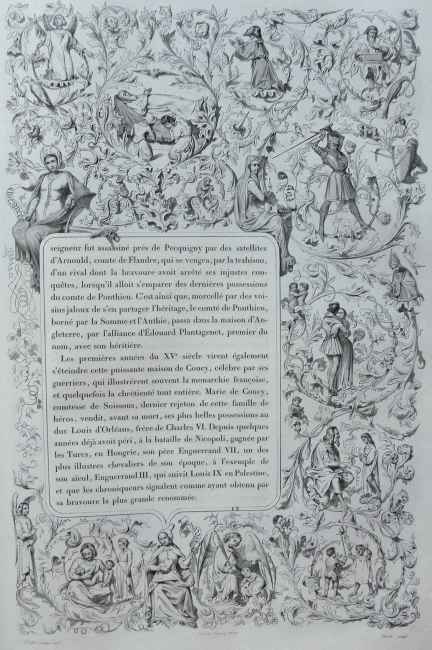 seigneur fut assassiné près de Pecquigny par des satellites
d'Arnould, comte de Flandre, qui se vengea, par la trahison,
d'un rival dont la bravoure avoit arrêté ses injustes con-
quêtes, lorsqu'il alloit s'emparer des dernières possessions
du comte de Ponthieu. C'est ainsi que, morcellé par des voi-
sins jaloux de s'en partager l'héritage, le comté de Ponthieu,
borné par la Somme et l'Authie, passa dans la maison d'An-
gleterre, par l'alliance d'Édouard Plantagenet, premier du
nom, avec son héritière.
Les premières années du XVᵉ siècle virent également
s'éteindre cette puissante maison de Coucy, célèbre par ses
guerriers, qui illustrèrent souvent la monarchie françoise,
et quelquefois la chrétienté tout entière. Marie de Coucy,
comtesse de Soissons, dernier rejeton de cette famille de
héros, vendit, avant sa mort, ses plus belles possessions au
duc Louis d'Orléans, frère de Charles VI. Depuis quelques
années déjà avoit péri, à la bataille de Nicopoli, gagnée par
les Turcs, en Hongrie, son père Enguerrand VII, un des
plus illustres chevaliers de son époque, à l'exemple de
son aïeul, Enguerrand III, qui suivit Louis IX en Palestine,
et que les chroniqueurs signalent comme ayant obtenu par
sa bravoure la plus grande renommée.